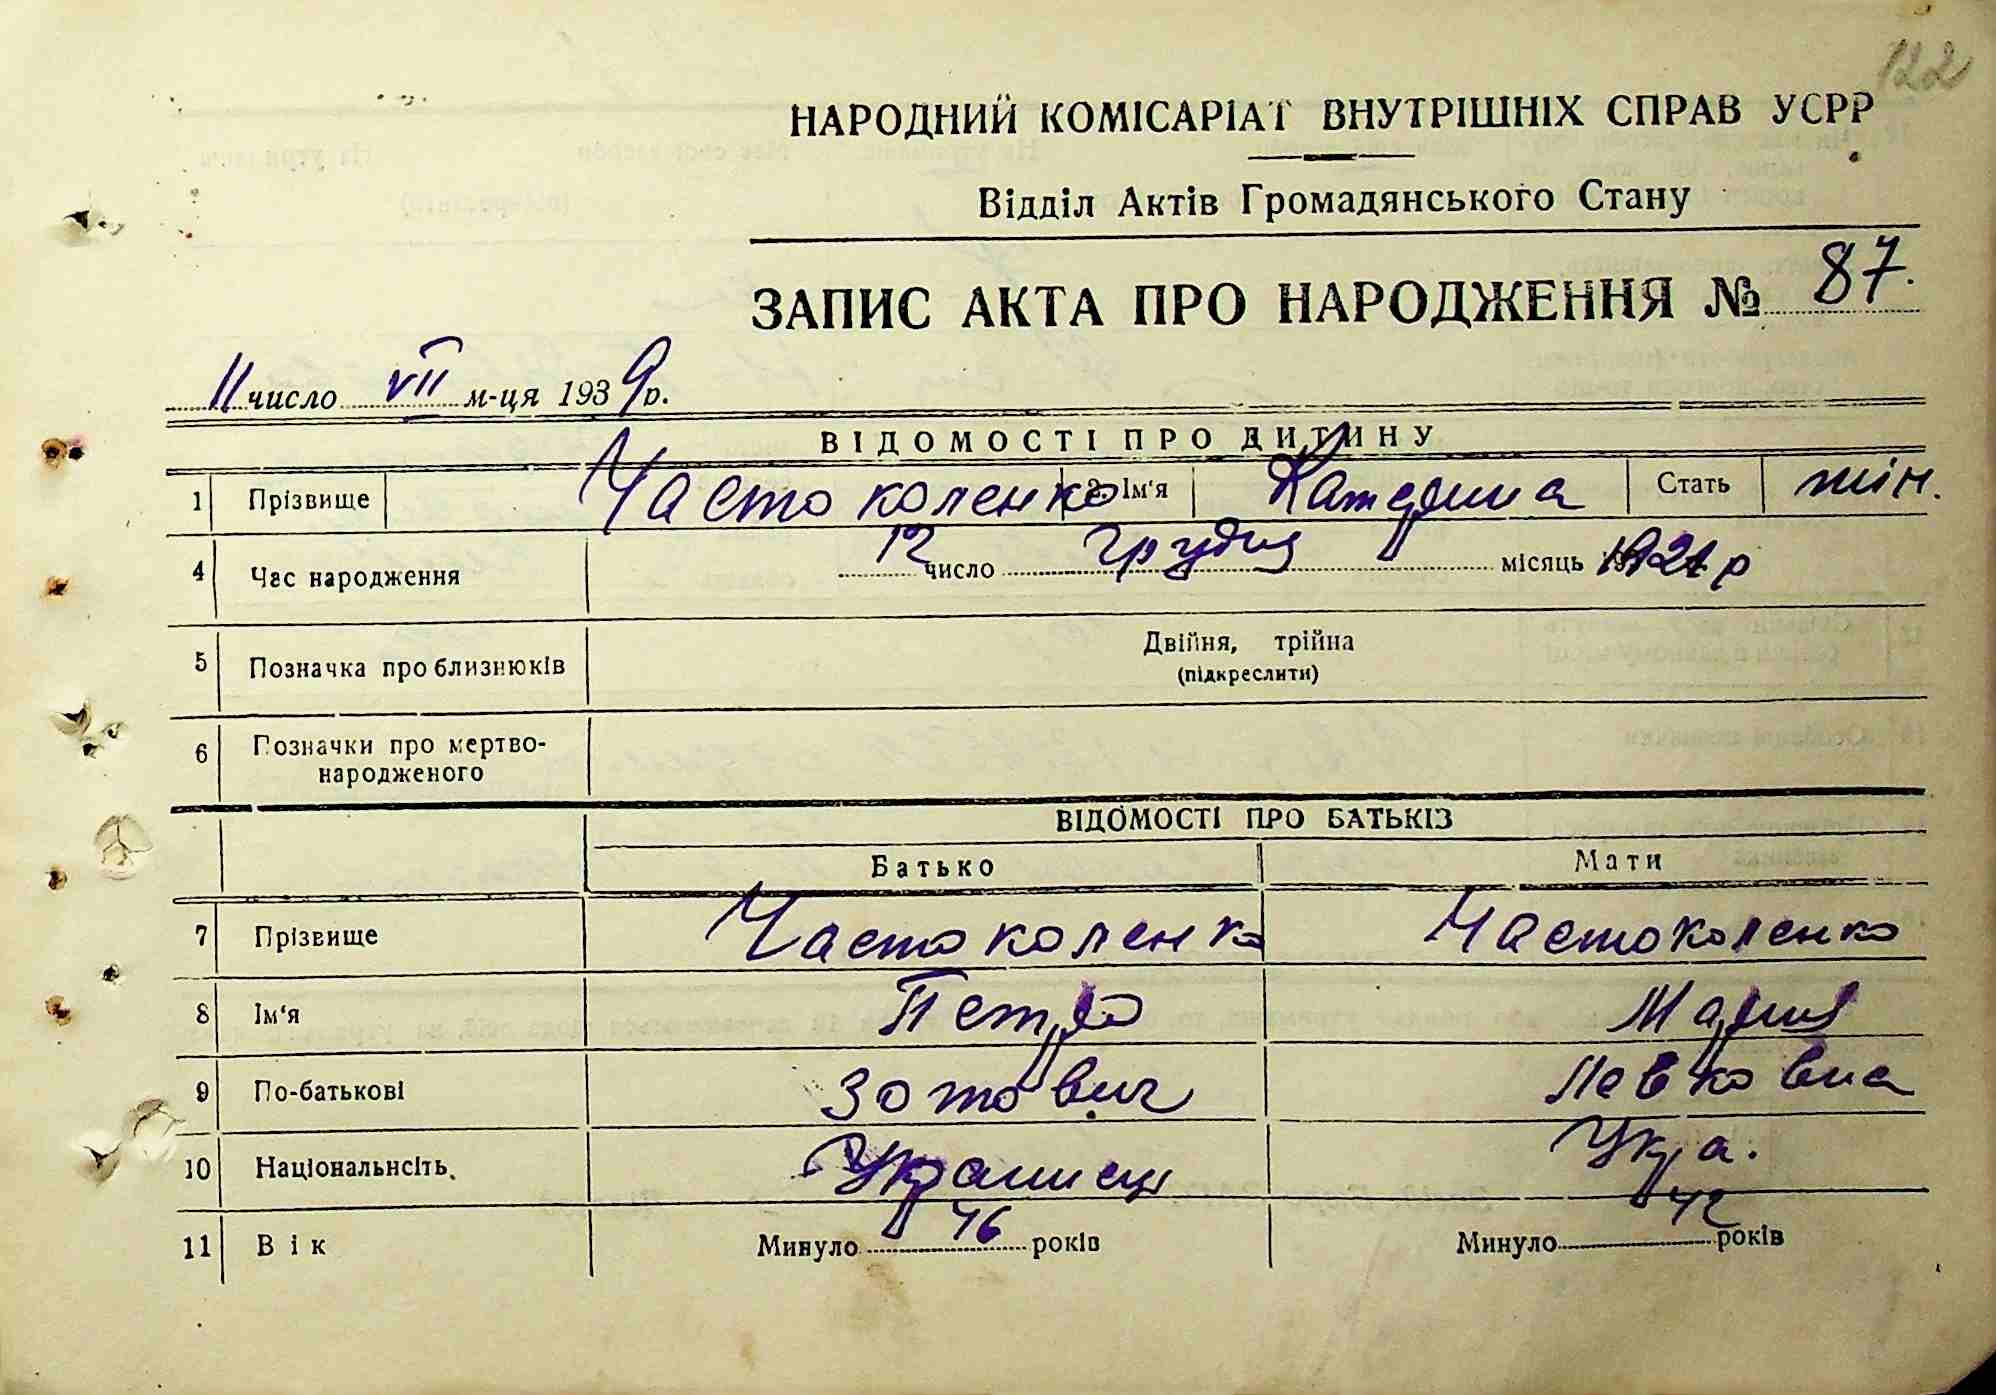 122
НАРОДНИЙ КОМІСАРІАТ ВНУТРІШНІХ СПРАВ УСРР
Відділ Актів Громадянського Стану
ЗАПИС АКТА ПРО НАРОДЖЕННЯ № 87.
11 число VII м-ця 1939 р.
ВІДОМОСТІ ПРО ДИТИНУ
1 Прізвище Частоколенко 2. Ім'я Катерина Стать жін.
4 Час народження 12 число грудня місяць 1921 р
5 Позначка про близнюків Двійня, трійна
(підкреслити)
6 Позначки про мертво-
народженого
ВІДОМОСТІ ПРО БАТЬКІЗ
Батько Мати
7 Прізвище Частоколенко Частоколенко
8 Ім'я Петро Мария
9 По-батькові Зотович Левковна
10 Національнсіть. Украинец Укра.
11 Вік Минуло 46 років Минуло 42 років